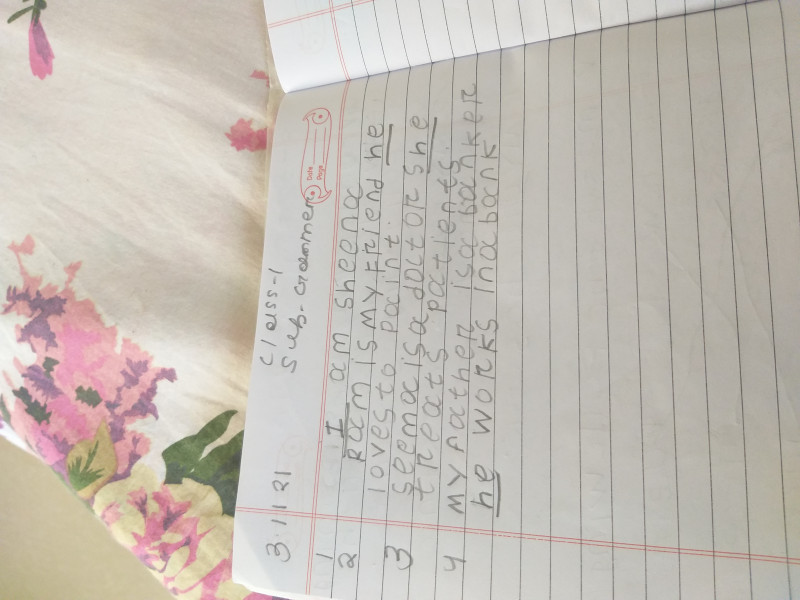 3.11.21
class-1
Sub-Grammer
Date
Page
1 I am sheena
2 Ram is my friend he
loves to paint.
3 seema is a doctor she
treats patients.
4 my father is a banker
he works in a bank